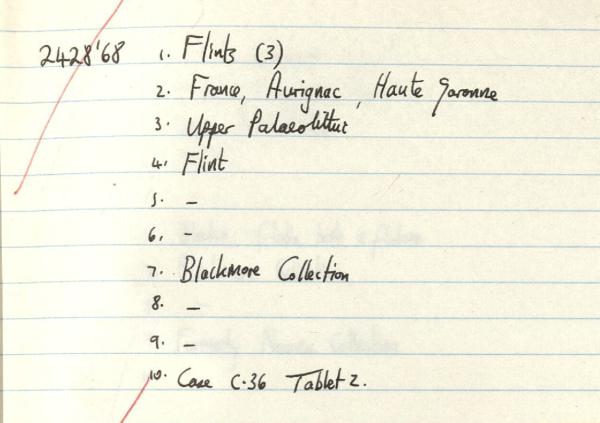 2428'68 1. Flints (3)
2. France, Aurignac, Haute Garonne
3. Upper Palaeolithic
4. Flint
5. –
6. –
7. Blackmore Collection
8. –
9. –
10. Case C.36 Tablet 2.